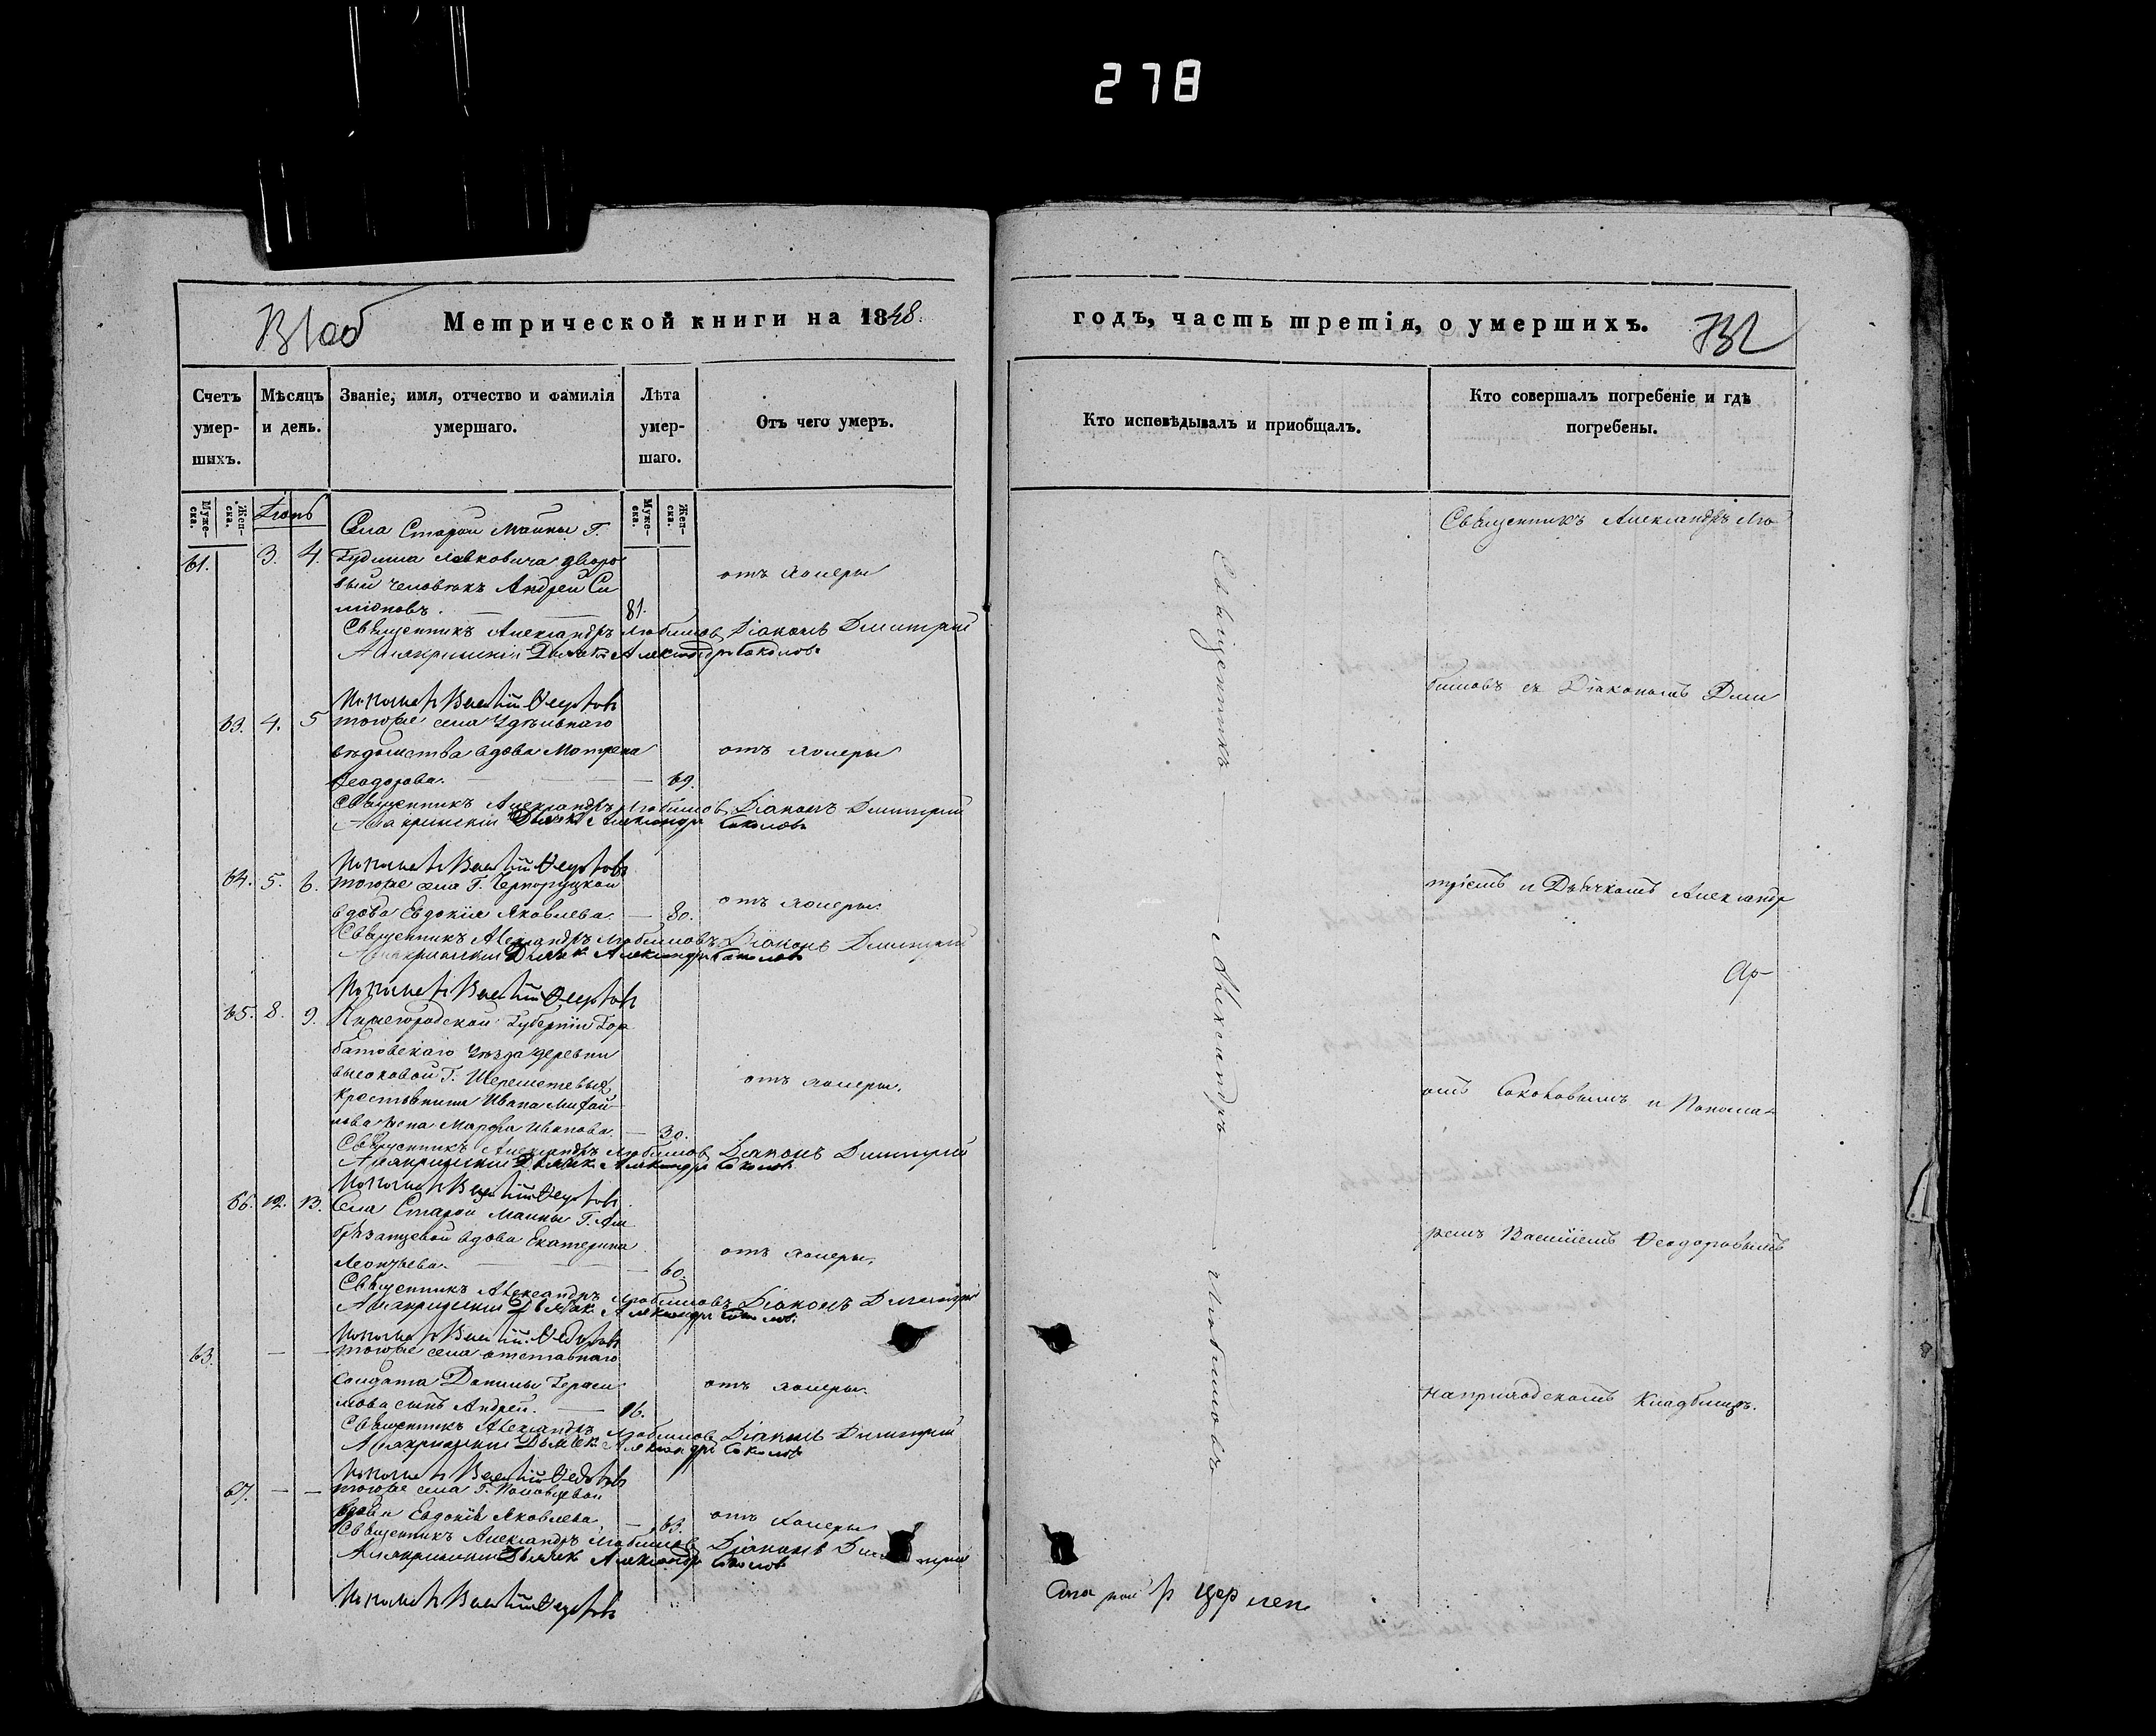 278
Метрической книги на 1848.
годъ, часть третія, о умершихъ.
732
Счетъ умер-шихъ.
Мѣсяцъ и день.
Званіе, имя, отчество и фамилія умершаго.
Лѣта умер-шаго.
Отъ чего умеръ.
Кто исповѣдывалъ и приобщалъ.
Кто совершалъ погребеніе и гдѣ погребены.
Муже-ска.
Жен-ска.
Муже-ска.
Жен-ска.
Села Старой Майны Г.
61. 3. 4.
дворо
вый человѣкъ Андрей Си
міоновъ. 81.
отъ холеры
Священникъ Александръ Любимовъ Діаконъ Димитрій
Дьячекъ Александръ Соколовъ
Пономарь Василій Ѳедоровъ
63. 4. 5 тогоже села Удѣльнаго
вѣдомства вдова Матрена
Ѳеодорова. 69.
отъ холеры
Священникъ Александръ Любимовъ Діаконъ Димитрій
Дьячекъ Александръ Соколовъ
Пономарь Василій Ѳедоровъ
64. 5. 6. тогоже села Г. Черноруцкой
вдова Евдокія Яковлева. 80.
отъ холеры.
Священникъ Александръ Любимовъ Діаконъ Димитрій
Дьячекъ Александръ Соколовъ
Пономарь Василій Ѳедоровъ
65. 8. 9. Нижегородской Губерніи Гор
батовскаго Уѣзда деревни
Высоковой Г. Шереметевыхъ
крестьянина Ивана Михай
лова жена Марфа Иванова. 30.
отъ холеры.
Священникъ Александръ Любимовъ Діаконъ Димитрій
Дьячекъ Александръ Соколовъ
Пономарь Василій Ѳедоровъ
66. 12. 13. Села Старой Майны Г.
вдова Екатерина
Леонтьева. 60.
отъ холеры.
Священникъ Александръ Любимовъ Діаконъ Димитрій
Дьячекъ Александръ Соколовъ
Пономарь Василій Ѳедоровъ
63. — — тогоже села отставнаго
солдата Данилы Гераси
мова сынъ Андрей. 16.
отъ холеры.
Священникъ Александръ Любимовъ Діаконъ Димитрій
Дьячекъ Александръ Соколовъ
Пономарь Василій Ѳедоровъ
67. — — тогоже села Г.
вдова Евдокія Яковлева 63.
отъ холеры
Священникъ Александръ Любимовъ Діаконъ Димитрій
Дьячекъ Александръ Соколовъ
Пономарь Василій Ѳедоровъ
Священникъ — Александръ — Любимовъ
Священникъ Александръ Лю
бимовъ съ Діакономъ Дми
тріемъ и Дьячкомъ Александр
омъ Соколовымъ и Понома
ремъ Василіемъ Ѳеодоровымъ
на приходскомъ кладбищѣ.